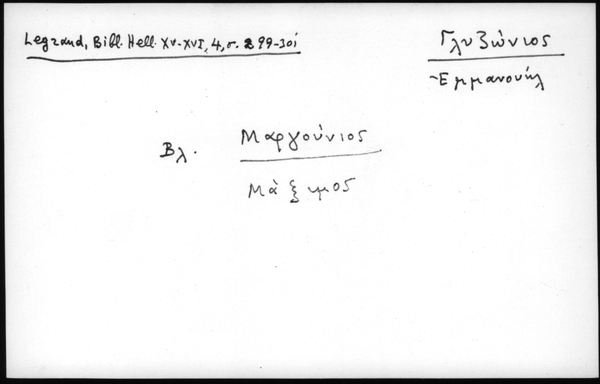 Legrand, Bibl. Hell. XV-XVI, 4, σ. 299-301
Γλυζώνιος
Ἐμμανουήλ
Βλ. Μαργούνιος
Μάξιμος